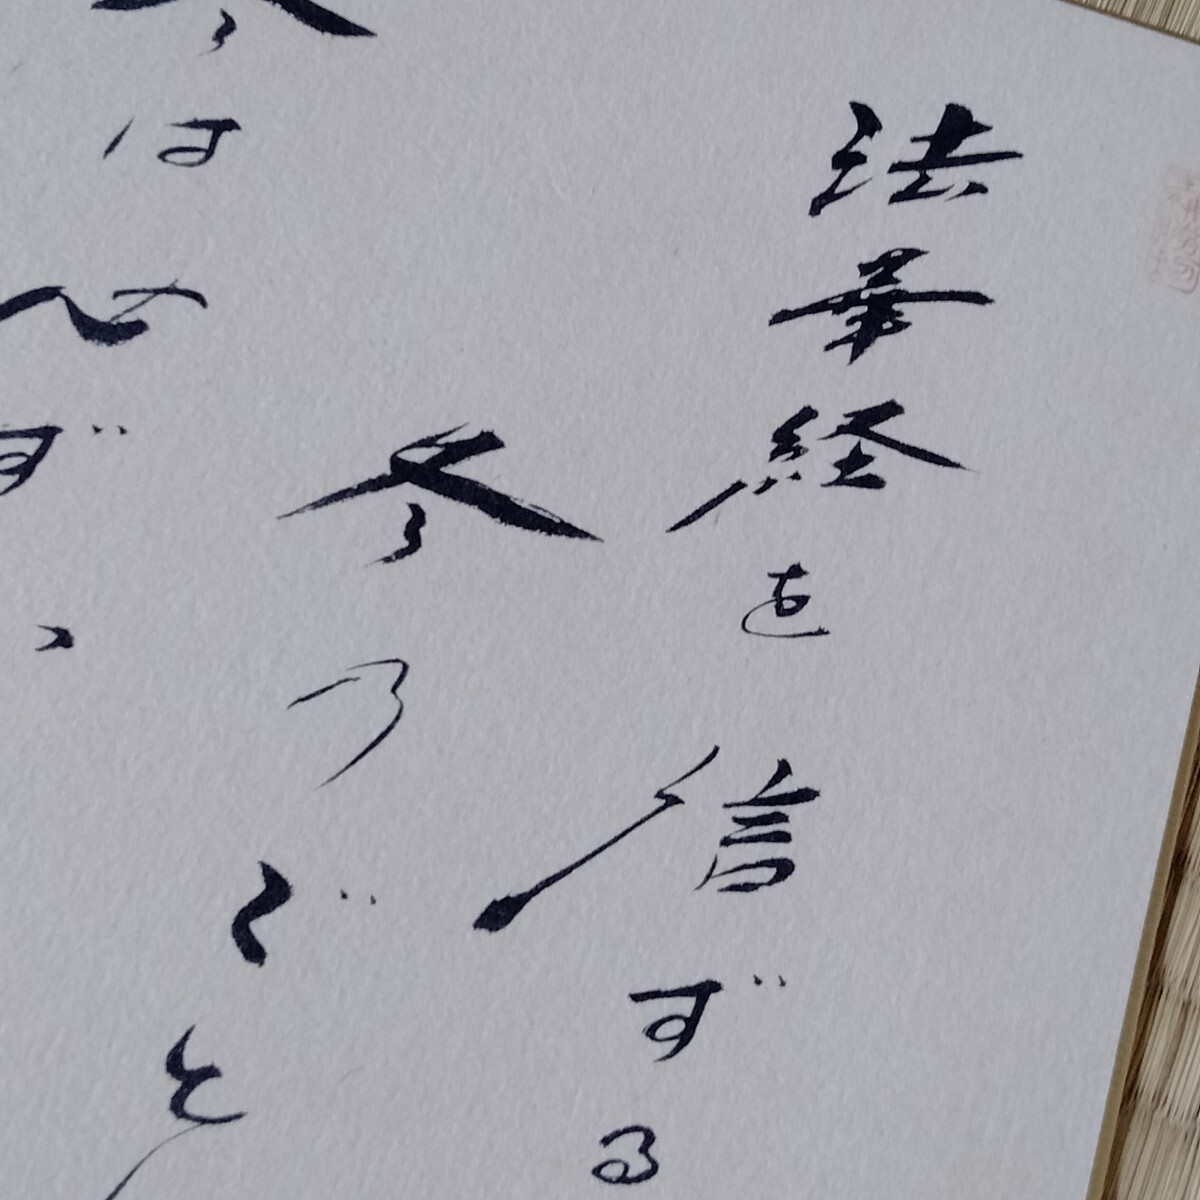 法華経を信ずる
冬のごと
冬は必ず、